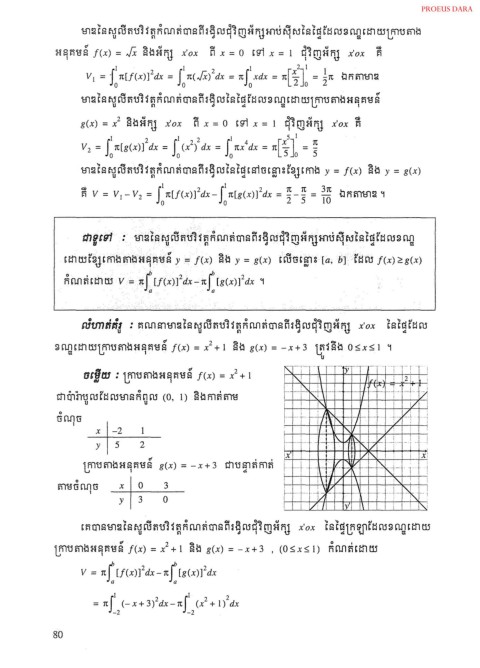 PROEUS DARA
មាឌនៃសូលីតបរិវត្តកំណត់បានពីរង្វិលជុំវិញអ័ក្សអាប់ស៊ីសនៃផ្ទៃដែលខណ្ឌដោយក្រាបតាង
អនុគមន៍ f(x) = √x និងអ័ក្ស x'ox ពី x = 0 ទៅ x = 1 ជុំវិញអ័ក្ស x'ox គឺ
V₁ = ∫₀¹ π[f(x)]²dx = ∫₀¹ π(√x)²dx = π∫₀¹ xdx = π[x²/2]₀¹ = 1/2 π ឯកតាមាឌ
មាឌនៃសូលីតបរិវត្តកំណត់បានពីរង្វិលនៃផ្ទៃដែលខណ្ឌដោយក្រាបតាងអនុគមន៍
g(x) = x² និងអ័ក្ស x'ox ពី x = 0 ទៅ x = 1 ជុំវិញអ័ក្ស x'ox គឺ
V₂ = ∫₀¹ π[g(x)]²dx = ∫₀¹ (x²)²dx = ∫₀¹ πx⁴dx = π[x⁵/5]₀¹ = π/5
មាឌនៃសូលីតបរិវត្តកំណត់បានពីរង្វិលនៃផ្ទៃនៅចន្លោះខ្សែកោង y = f(x) និង y = g(x)
គឺ V = V₁ − V₂ = ∫₀¹ π[f(x)]²dx − ∫₀¹ π[g(x)]²dx = π/2 − π/5 = 3π/10 ឯកតាមាឌ ។
ជាទូទៅ : មាឌនៃសូលីតបរិវត្តកំណត់បានពីរង្វិលជុំវិញអ័ក្សអាប់ស៊ីសនៃផ្ទៃដែលខណ្ឌ
ដោយខ្សែកោងតាងអនុគមន៍ y = f(x) និង y = g(x) លើចន្លោះ [a, b] ដែល f(x) ≥ g(x)
កំណត់ដោយ V = π∫ₐᵇ [f(x)]²dx − π∫ₐᵇ [g(x)]²dx ។
លំហាត់គំរូ : គណនាមាឌនៃសូលីតបរិវត្តកំណត់បានពីរង្វិលជុំវិញអ័ក្ស x'ox នៃផ្ទៃដែល
ខណ្ឌដោយក្រាបតាងអនុគមន៍ f(x) = x² + 1 និង g(x) = −x + 3 ត្រូវនឹង 0 ≤ x ≤ 1 ។
ចម្លើយ : ក្រាបតាងអនុគមន៍ f(x) = x² + 1
ជាប៉ារ៉ាបូលដែលមានកំពូល (0, 1) និងកាត់តាម
ចំណុច
x −2 1
y 5 2
ក្រាបតាងអនុគមន៍ g(x) = −x + 3 ជាបន្ទាត់កាត់
តាមចំណុច x 0 3
y 3 0
y
f(x) = x² + 1
x' x
y'
គេបានមាឌនៃសូលីតបរិវត្តកំណត់បានពីរង្វិលជុំវិញអ័ក្ស x'ox នៃផ្ទៃក្រឡាដែលខណ្ឌដោយ
ក្រាបតាងអនុគមន៍ f(x) = x² + 1 និង g(x) = −x + 3 , (0 ≤ x ≤ 1) កំណត់ដោយ
V = π∫ₐᵇ [f(x)]²dx − π∫ₐᵇ [g(x)]²dx
= π∫₋₂¹ (−x + 3)²dx − π∫₋₂¹ (x² + 1)²dx
80